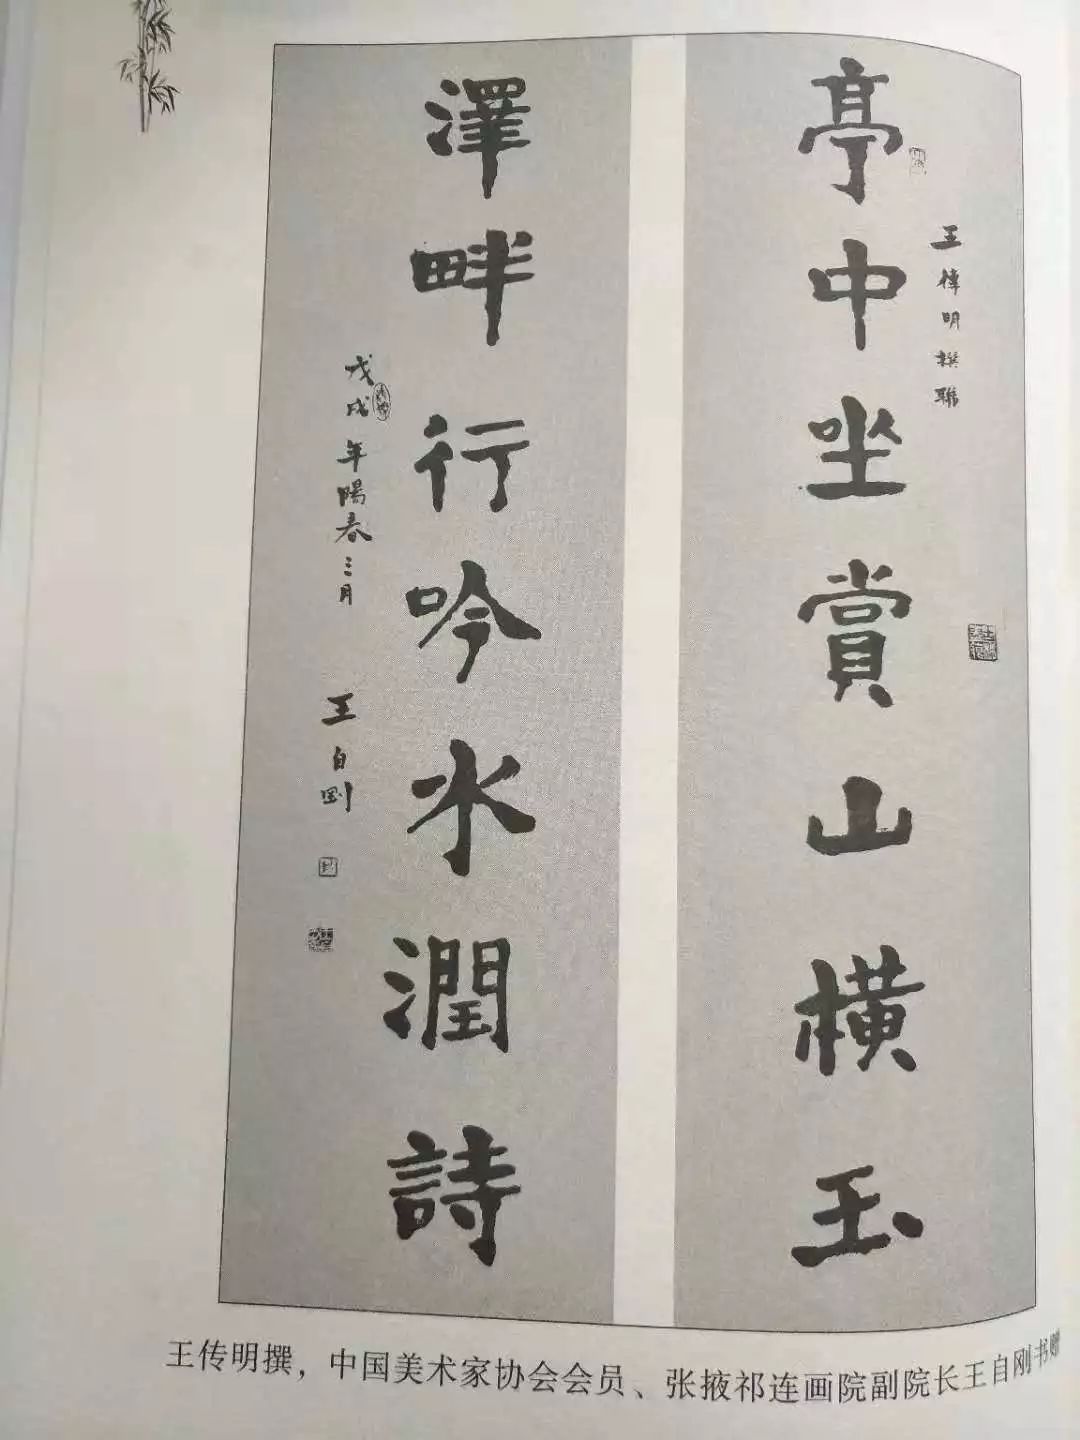 亭中坐賞山橫玉
王傳明撰聯
澤畔行吟水潤詩
戊戌年陽春三月
王自剛
王传明撰，中国美术家协会会员、张掖祁连画院副院长王自刚书赠